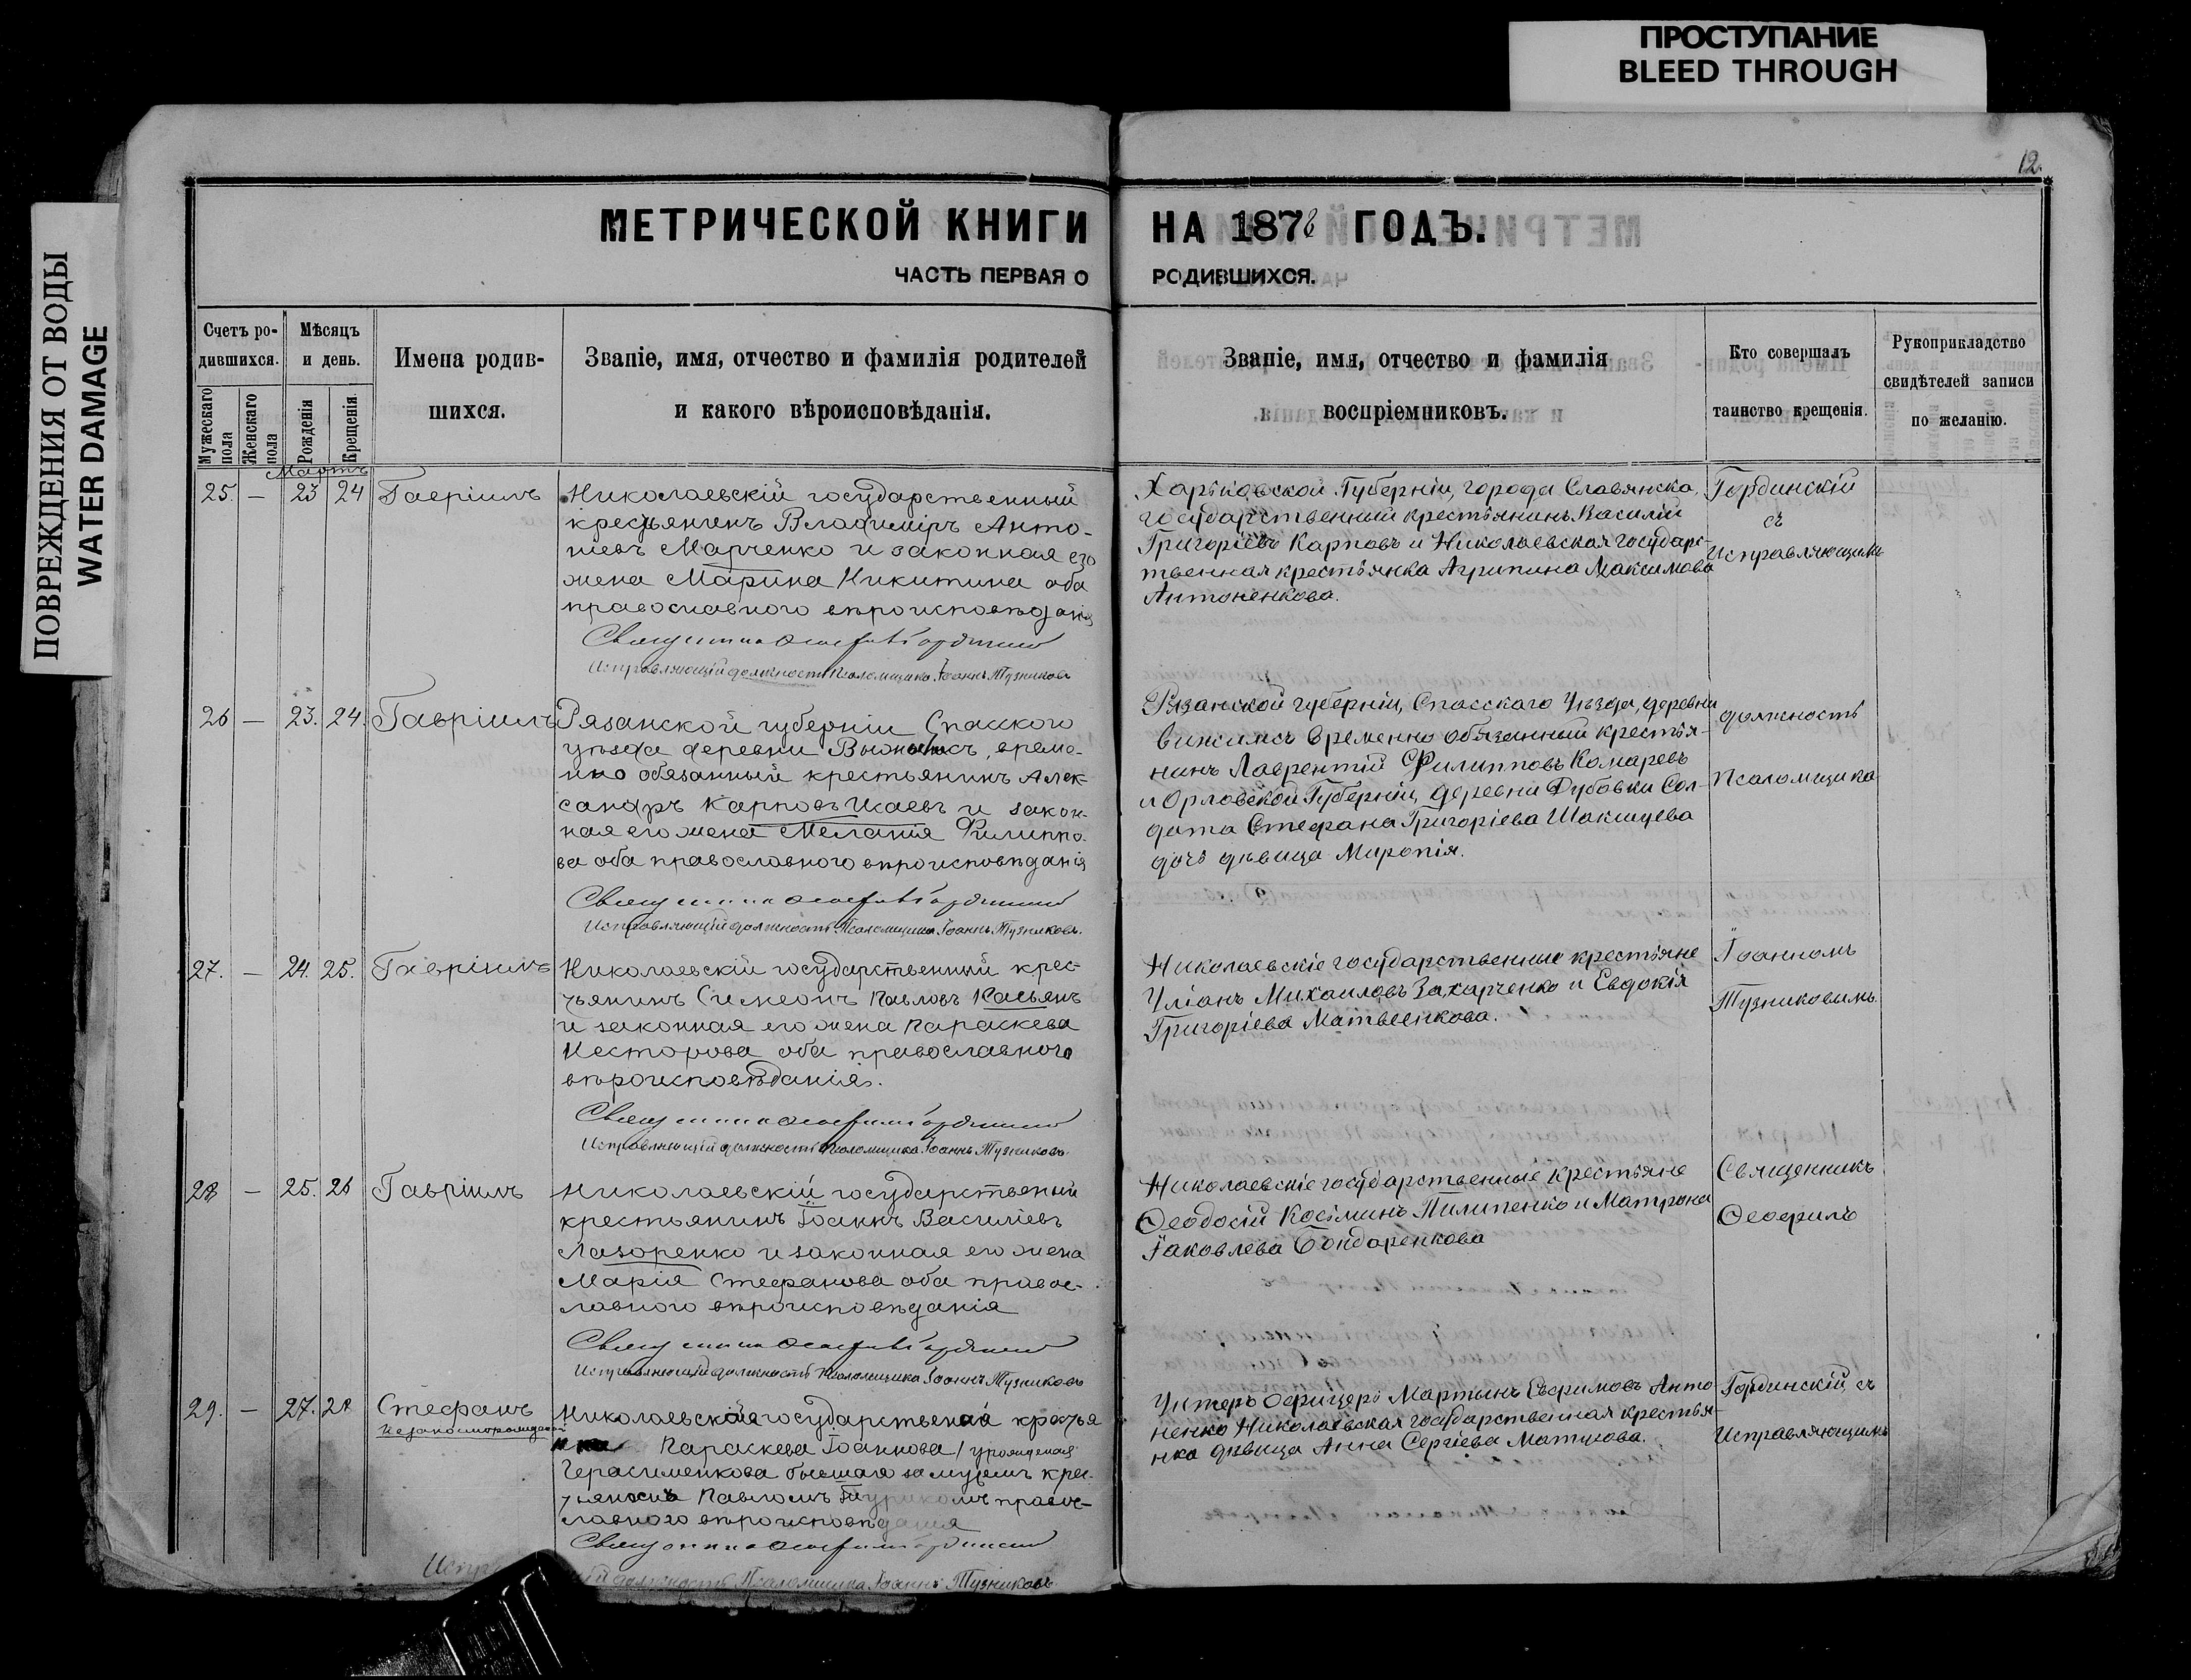 ПРОСТУПАНИЕ
BLEED THROUGH
ПОВРЕЖДЕНИЯ ОТ ВОДЫ
WATER DAMAGE
12.
МЕТРИЧЕСКОЙ КНИГИ НА 1876 ГОДЪ.
ЧАСТЬ ПЕРВАЯ О РОДИВШИХСЯ.
Счетъ ро-
дившихся.
Мужескаго пола
Женскаго пола
Мѣсяцъ
и день.
Рожденія
Крещенія.
Имена родив-
шихся.
Званіе, имя, отчество и фамилія родителей
и какого вѣроисповѣданія.
Званіе, имя, отчество и фамилія
воспріемниковъ.
Кто совершалъ
таинство крещенія.
Рукоприкладство
свидѣтелей записи
по желанію.
Мартъ
25. — 23 24 Гавріилъ
Николаевскій государственный
крестьянинъ Владиміръ Анто-
ніевъ Марченко и законная его
жена Марина Никитина оба
православного вѣроисповѣданія
Священникъ Ѳеофилъ Гординскій
Исправляющій должность Псаломщика Іоаннъ Тузниковъ
Харьковской Губерніи, города Славянска,
государственный крестьянинъ Василій
Григоріевъ Карповъ и Николаевская государс-
твенная крестьянка Агрипина Максимова
Антоненкова.
Гординскій
съ
Исправляющимъ
26 — 23. 24. Гавріилъ
Рязанской губерніи Спасского
уѣзда деревни временно
обязанный крестьянинъ Алек-
сандръ Карповъ Исаевъ и закон-
ная его жена Меланія Филиппо-
ва оба православного вѣроисповѣданія
Священникъ Ѳеофилъ Гординскій
Исправляющій должность Псаломщика Іоаннъ Тузниковъ.
Рязанской губерніи, Спасскаго Уѣзда, деревни
временно обязанный крестья-
нинъ Лаврентій Филипповъ Комаревъ
и Орловской Губерніи, деревни Дубовки Сол-
дата Стефана Григоріева
дочь дѣвица Миропія.
должность
Псаломщика
27. — 24. 25. Гавріилъ
Николаевскій государственный крес-
тьянинъ Симеонъ Павловъ Касьянъ
и законная его жена Параскева
Несторова оба православного
вѣроисповѣданія.
Священникъ Ѳеофилъ Гординскій
Исправляющій должность Псаломщика Іоаннъ Тузниковъ.
Николаевскіе государственные крестьяне
Уліанъ Михаиловъ Захарченко и Евдокія
Григоріева Матвѣенкова.
Іоанномъ
Тузниковымъ.
28 — 25. 26 Гавріилъ
Николаевскій государственый
крестьянинъ Іоаннъ Василіевъ
Лазоренко и законная его жена
Марія Стефанова оба правос-
лавного вѣроисповѣданія
Священникъ Ѳеофилъ Гординскій
Исправляющій должность Псаломщика Іоаннъ Тузниковъ
Николаевскіе государственные крестьяне
Ѳеодосій Косьминъ Пилипенко и Матрона
Іаковлева Бондаренкова
Священникъ
Ѳеофилъ
29. — 27. 28 Стефанъ
Незаконнорожденный
Николаевская государственая крестья
нка Параскева Іоаннова / урожденая
Герасименкова бывшая замужемъ крес-
тьяносмъ Павломъ правос-
лавного вѣроисповѣданія
Священникъ Ѳеофилъ Гординскій
должность Псаломщика Іоаннъ Тузниковъ
Унтеръ Офицеръ Мартынъ Евфимовъ Анто
ненко Николаевская государственная крестья-
нка дѣвица Анна Сергіева Матусова.
Гординскій съ
Исправляющимъ